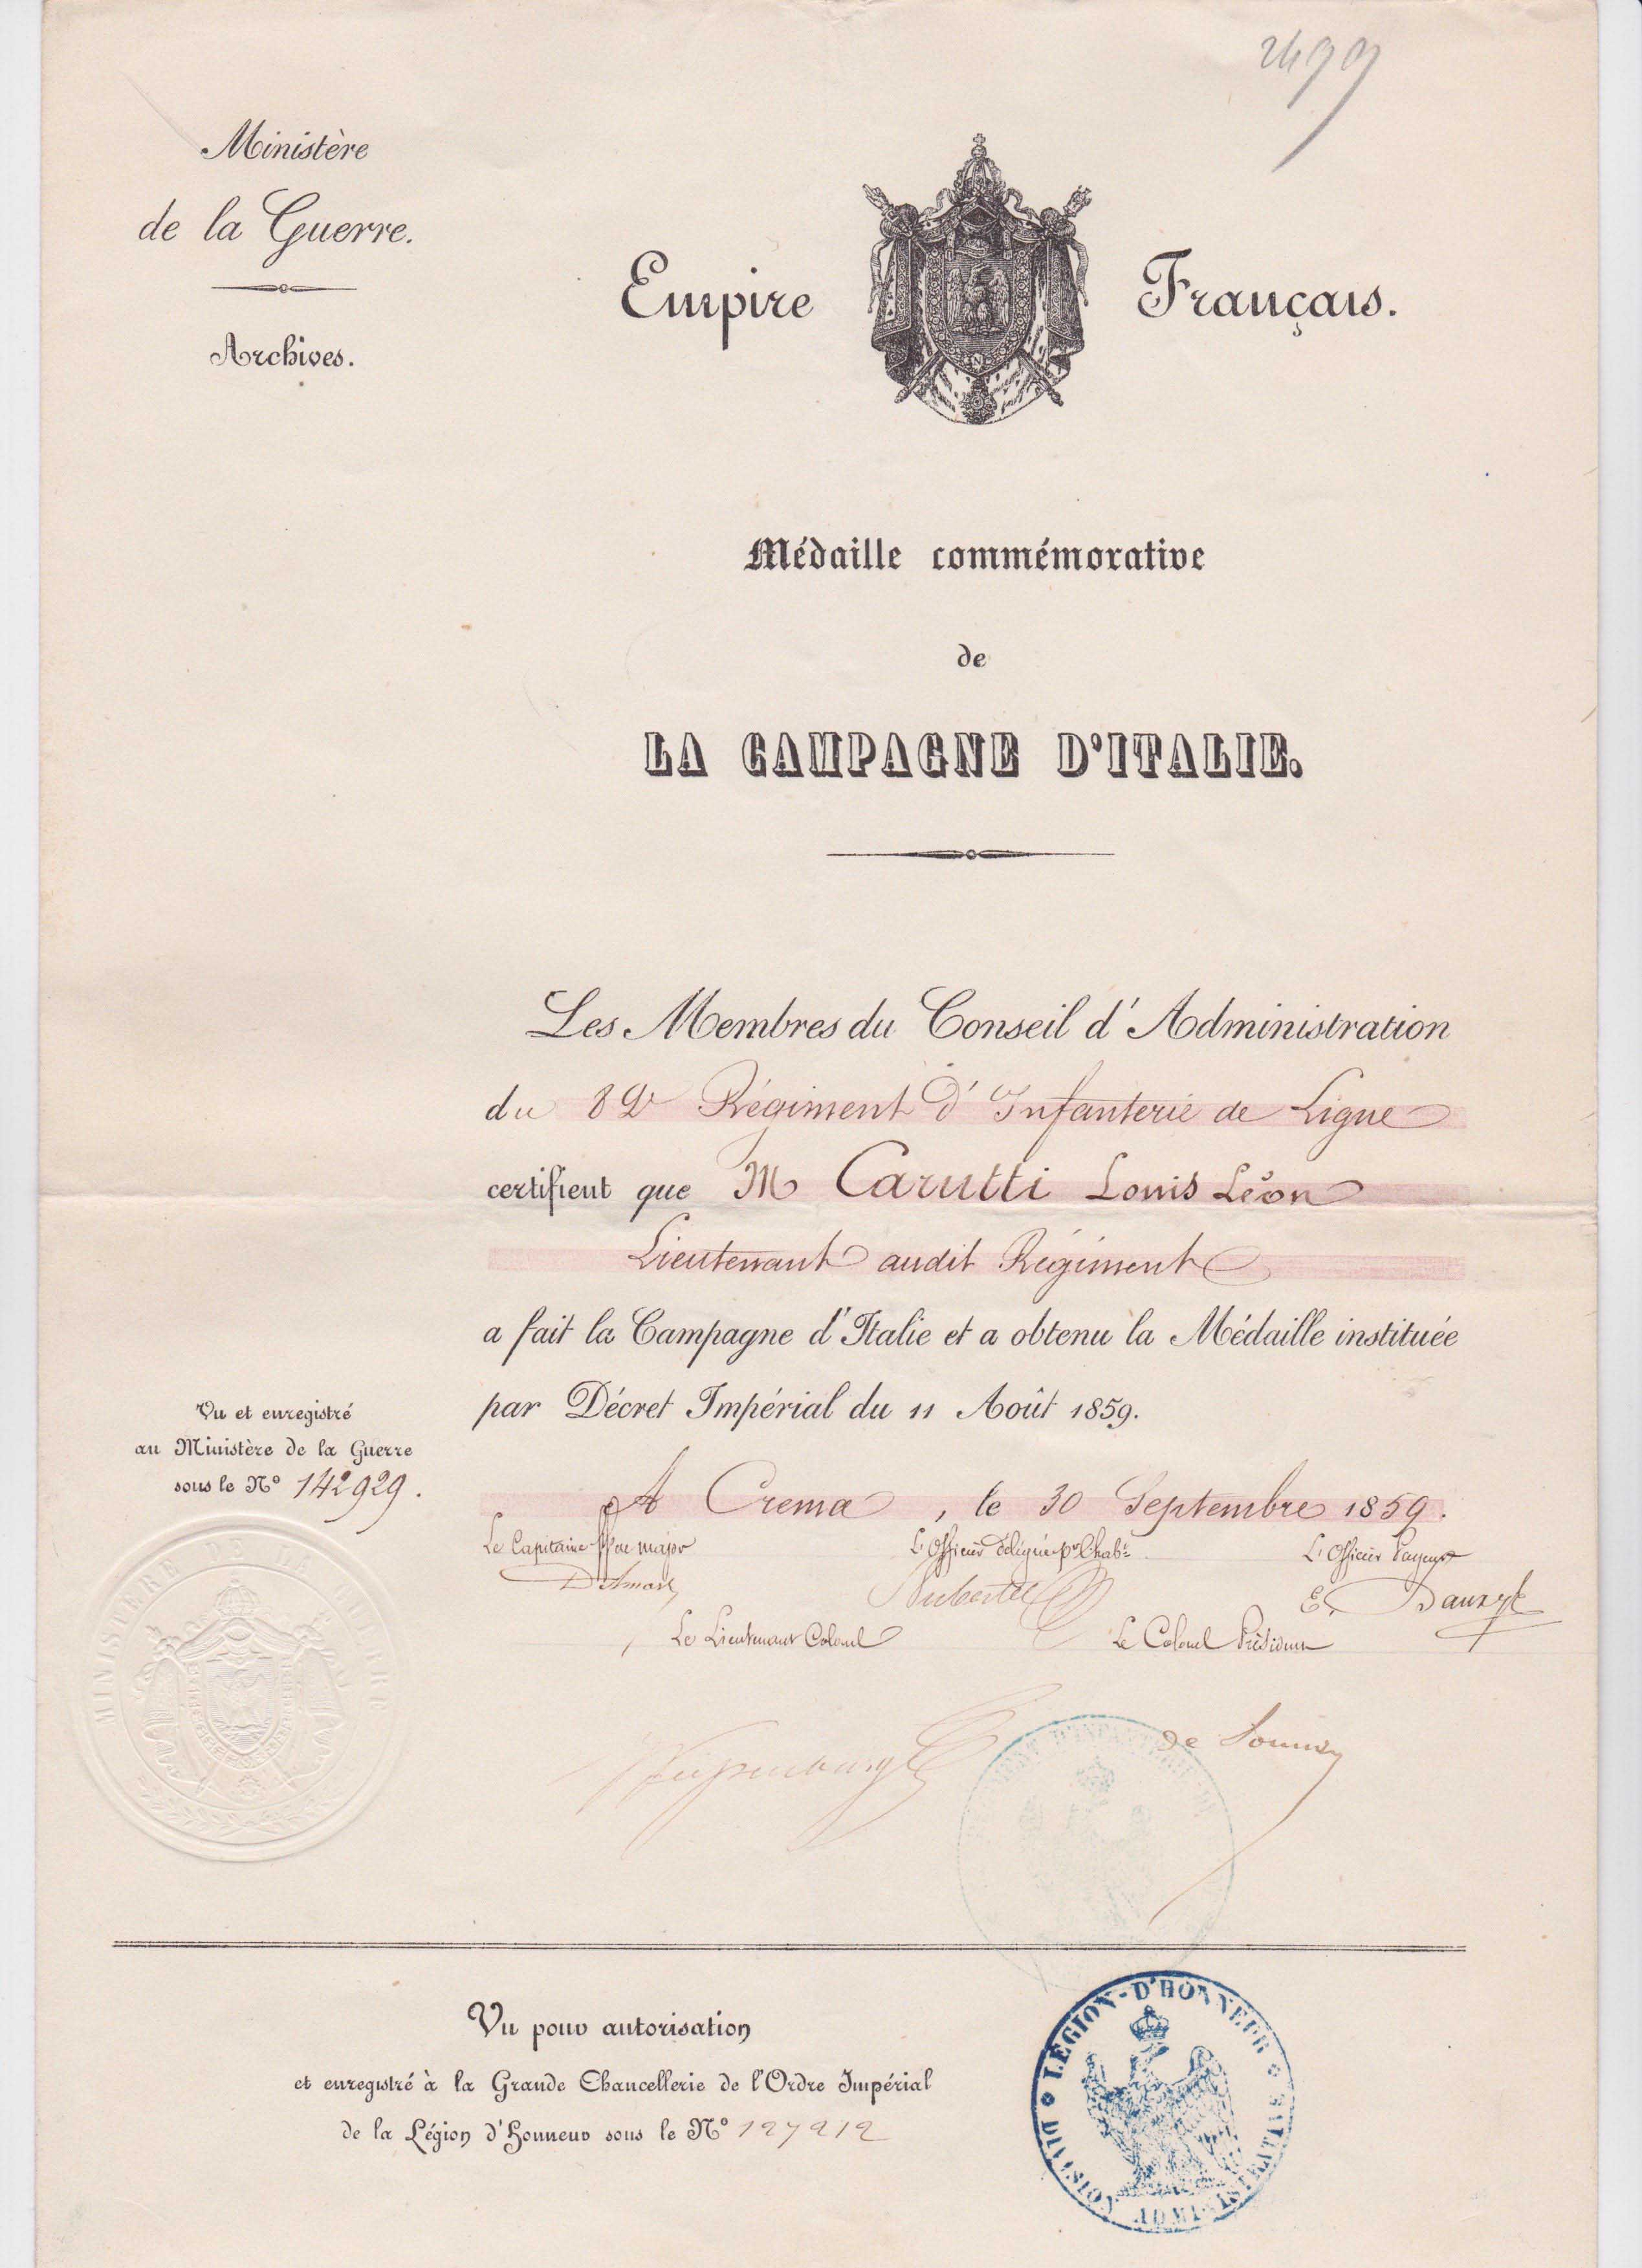 2499
Ministère
de la Guerre.
Archives.
Empire Français.
Médaille commémorative
de
LA CAMPAGNE D'ITALIE.
Les Membres du Conseil d'Administration
du 82e Régiment d'Infanterie de Ligne
certifient que M Carutti Louis Léon
Lieutenant audit Régiment
a fait la Campagne d'Italie et a obtenu la Médaille instituée
par Décret Impérial du 11 Août 1859.
Vu et enregistré
au Ministère de la Guerre
sous le No 142929.
A Crema, le 30 Septembre 1859.
Le Capitaine major
L'Officier délégué pr l'habt
L'Officier Payeur
Le Lieutenant Colonel
Le Colonel Président
MINISTÈRE DE LA GUERRE
Vu pour autorisation
et enregistré à la Grande Chancellerie de l'Ordre Impérial
de la Légion d'Honneur sous le No 127212
LÉGION-D'HONNEUR
DIVISION ADMINISTRATIVE